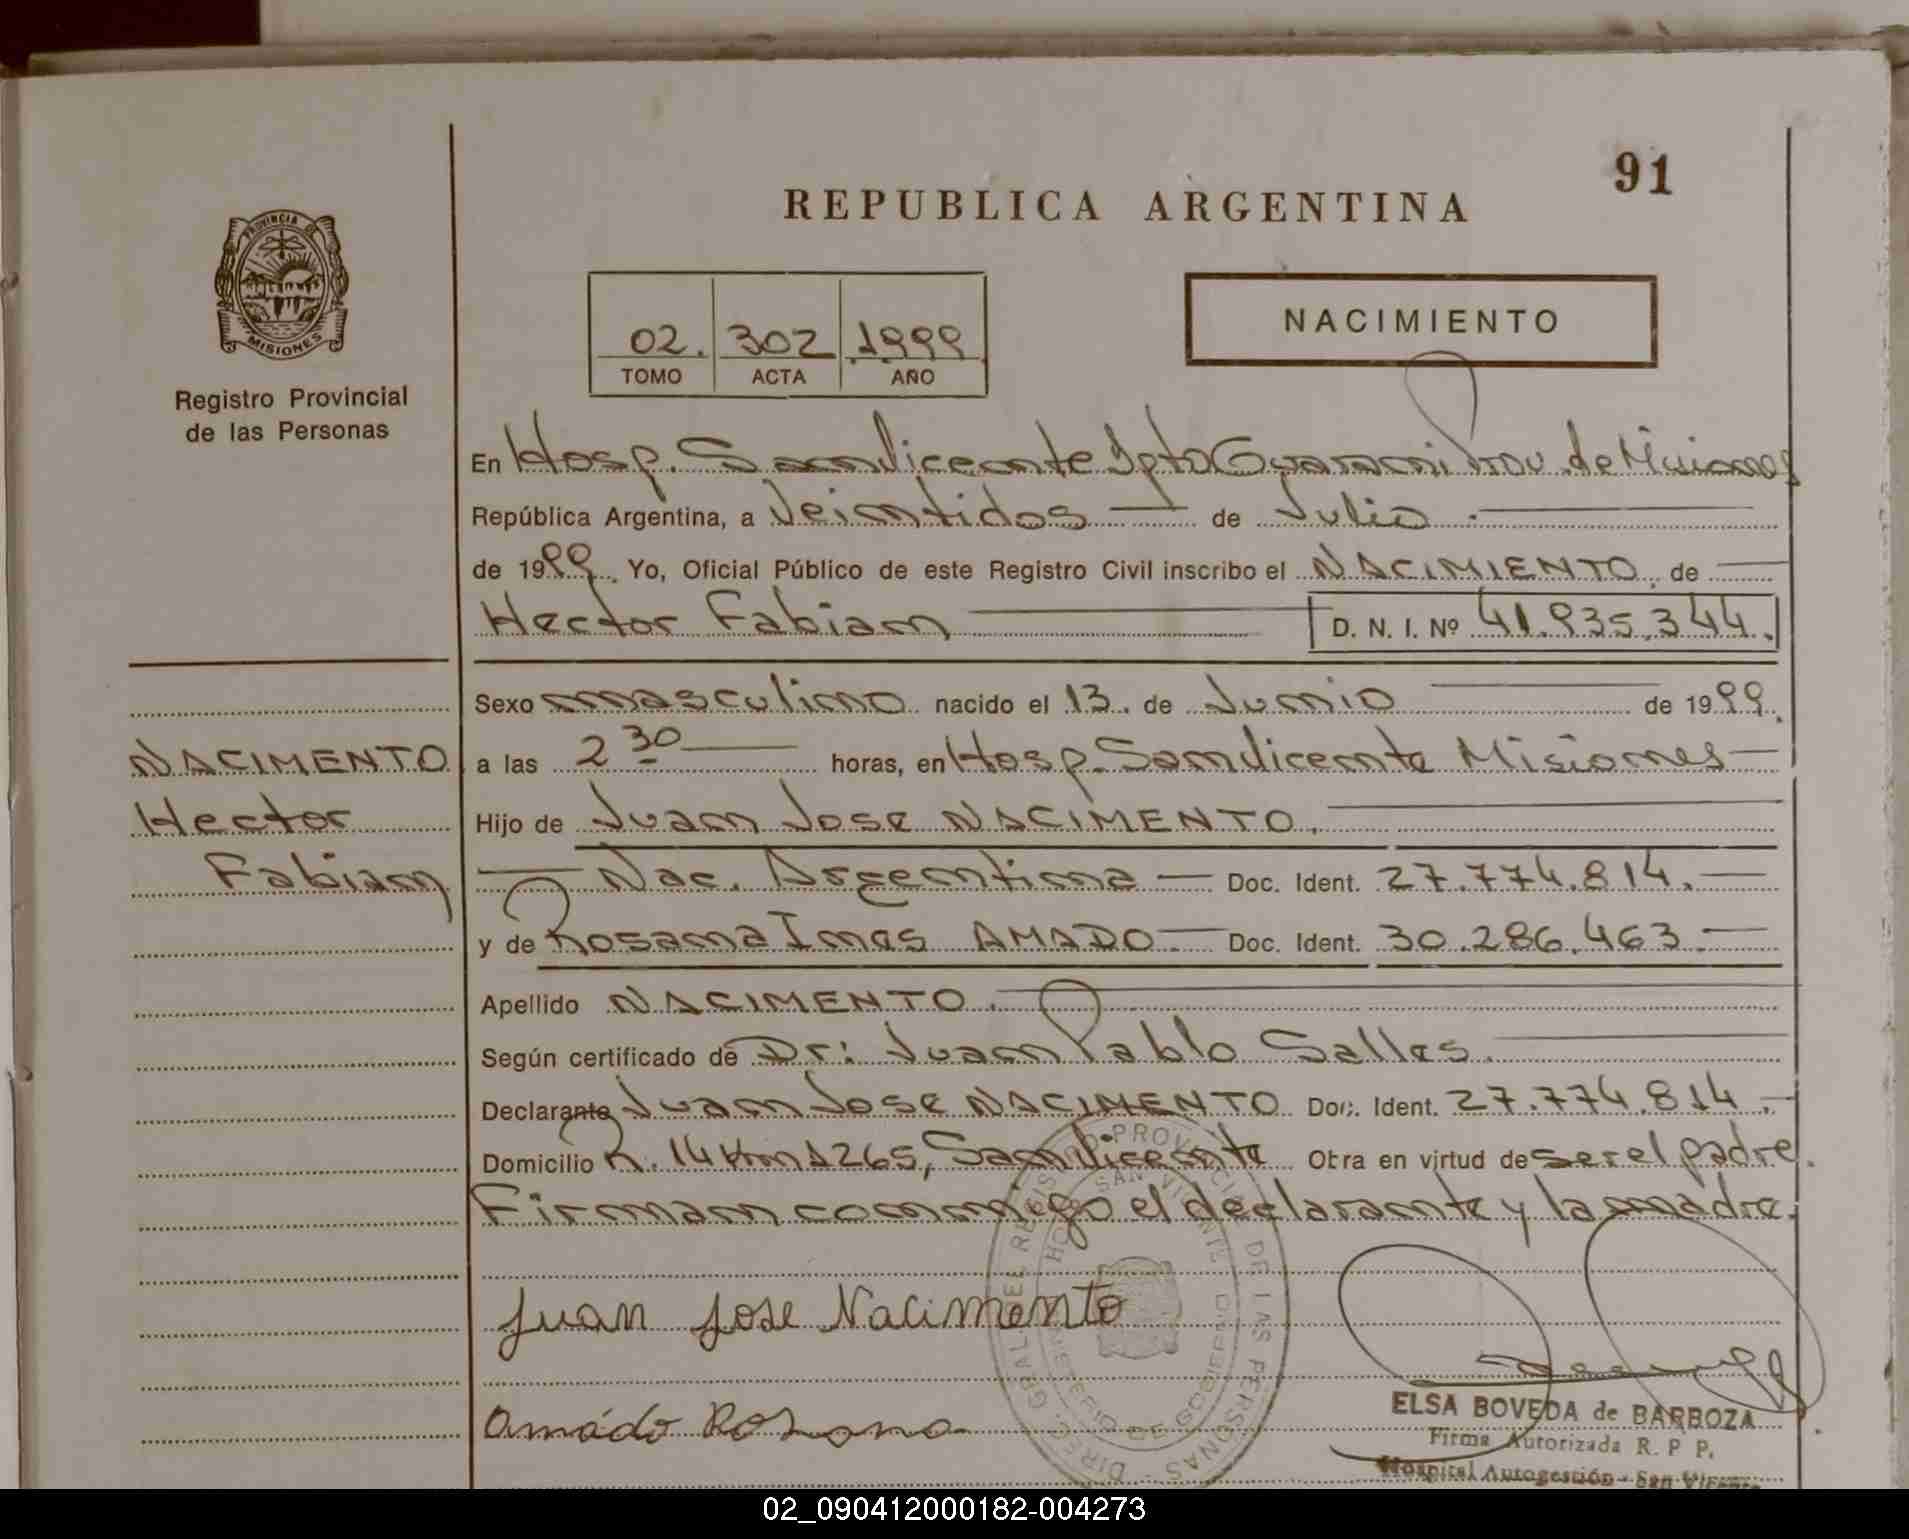 91
REPUBLICA ARGENTINA
PROVINCIA DE
MISIONES
Registro Provincial
de las Personas
02. 302 1999
TOMO ACTA AÑO
NACIMIENTO
En Hosp. San Vicente Dpto Guarani Prov. de Misiones
República Argentina, a Veintidos de Julio
de 1999. Yo, Oficial Público de este Registro Civil inscribo el NACIMIENTO de
Hector Fabian D. N. I. Nº 41.935.344.
Sexo masculino nacido el 13. de Junio de 1999.
a las 2 30 horas, en Hosp. San Vicente Misiones
Hijo de Juan Jose NACIMENTO.
Nac. Argentina Doc. Ident. 27.774.814.
y de Rosana Ines AMADO Doc. Ident. 30.286.463.
Apellido NACIMENTO.
Según certificado de Dr: Juan Pablo Salles.
Declarante Juan Jose NACIMENTO Doc. Ident. 27.774.814.
Domicilio R. 14 Km 1265, San Vicente Obra en virtud de ser el padre.
Firman conmigo el declarante y la madre.
NACIMENTO
Hector
Fabian
Juan Jose Nacimento
Amado Rosana
DIREC. GRAL. DEL REGISTRO PROVINCIAL DE LAS PERSONAS
MINISTERIO DE GOBIERNO
SAN VICENTE
ELSA BOVEDA de BARBOZA
Firma Autorizada R. P P.
Hospital Autogestión - San Vicente
02_090412000182-004273